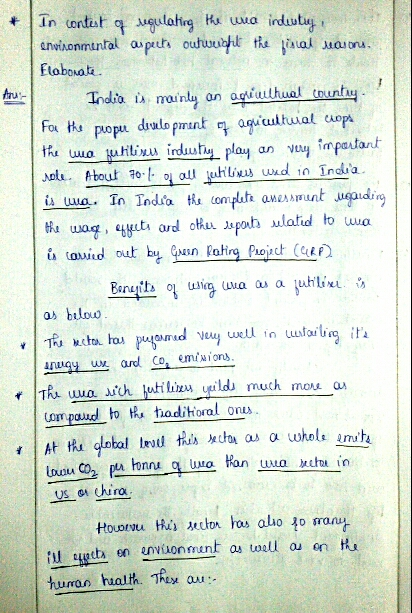 * In context of regulating the urea industry,
environmental aspects outweight the fiscal reasons.
Elaborate.
Ans:- India is mainly an agricultural country.
For the proper development of agricultural crops
the urea fertilisers industry play an very important
role. About 70% of all fertilisers used in India
is urea. In India the complete assessment regarding
the usage, effects and other reports related to urea
is carried out by Green Rating Project (GRP)
Benefits of using urea as a fertiliser is
as below.
* The sector has performed very well in curtailing it's
energy use and CO2 emissions.
* The urea rich fertilisers yeilds much more as
compared to the traditional ones.
* At the global level this sector as a whole emits
lower CO2 per tonne of urea than urea sector in
US or china.
However this sector has also so many
ill effects on environment as well as on the
human health. These are:-